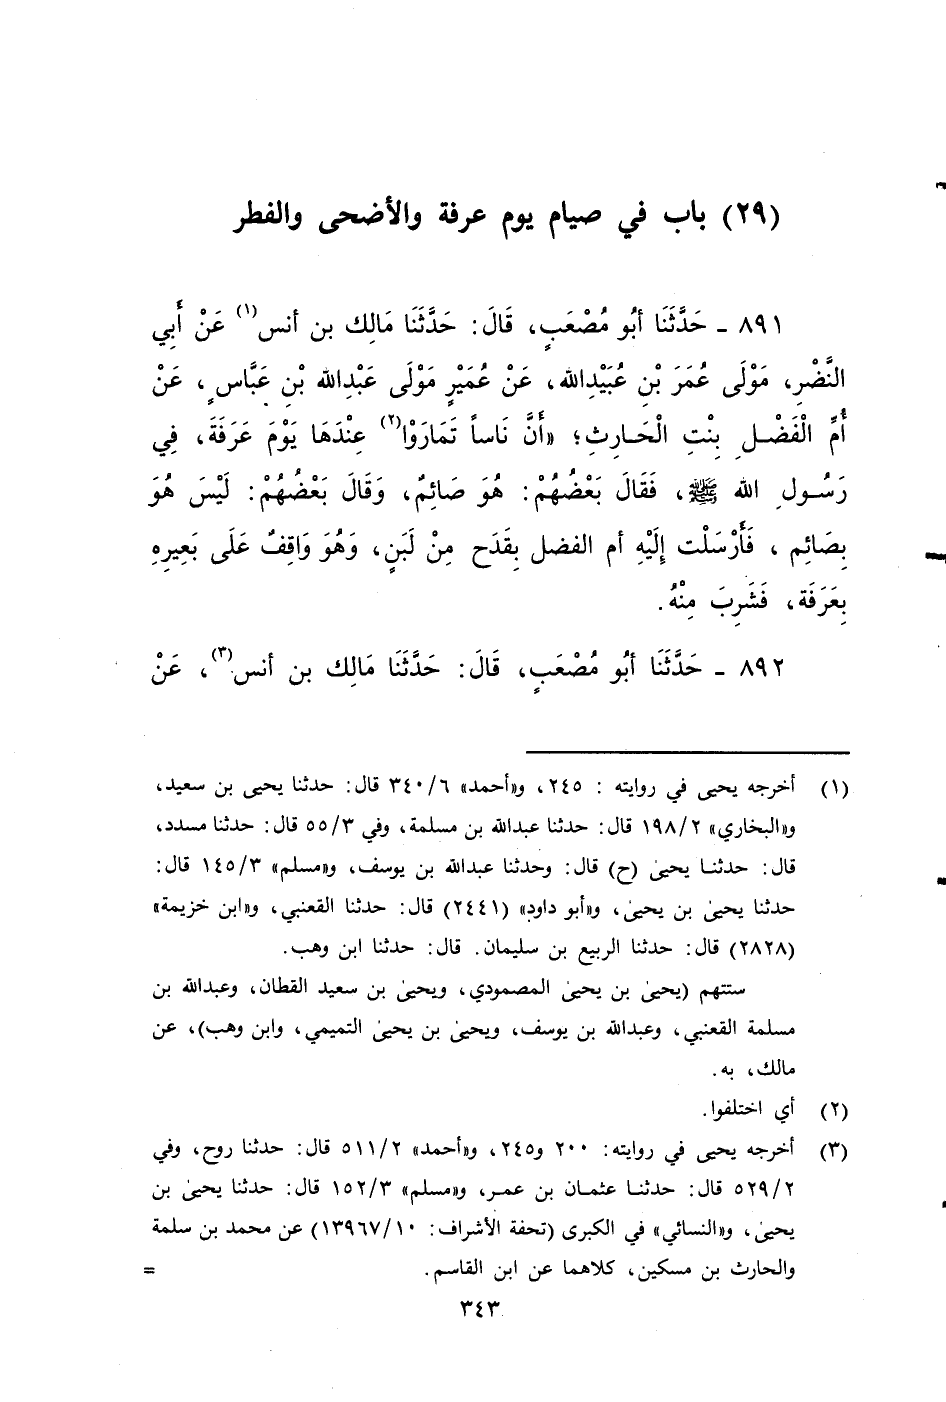 (٢٩) باب في صيام يوم عرفة والأضحى والفطر
٨٩١ ـ حَدَّثَنَا أبُو مُصْعَبٍ، قَالَ: حَدَّثَنَا مَالِك بن أنس(١) عَنْ أَبِي
النَّضْرِ، مَوْلَى عُمَرَ بْنِ عُبَيْدِالله، عَنْ عُمَيْرٍ مَوْلَى عَبْدِالله بْنِ عَبَّاسٍ، عَنْ
أُمِّ الْفَضْلِ بِنْتِ الْحَارِثِ؛ «أَنَّ نَاساً تَمَارَوْا(٢) عِنْدَهَا يَوْمَ عَرَفَةَ، فِي
رَسُولِ الله ﷺ، فَقَالَ بَعْضُهُمْ: هُوَ صَائِمٌ، وَقَالَ بَعْضُهُمْ: لَيْسَ هُوَ
بِصَائِمٍ، فَأَرْسَلْت إِلَيْهِ أم الفضل بِقَدَحِ مِنْ لَبَنٍ، وَهُوَ وَاقِفٌ عَلَى بَعِيرِهِ
بِعَرَفَة، فَشَرِبَ مِنْهُ.
٨٩٢ ـ حَدَّثَنَا أبُو مُصْعَبٍ، قَالَ: حَدَّثَنَا مَالِك بن أنس(٣)، عَنْ
(١) أخرجه يحيى في روايته : ٢٤٥، و«أحمد» ٣٤٠/٦ قال: حدثنا يحيى بن سعيد،
و«البخاري» ١٩٨/٢ قال: حدثنا عبدالله بن مسلمة، وفي ٥٥/٣ قال: حدثنا مسدد،
قال: حدثنا يحيىٰ (ح) قال: وحدثنا عبدالله بن يوسف، و«مسلم» ١٤٥/٣ قال:
حدثنا يحيىٰ بن يحيىٰ، و«أبو داود» (٢٤٤١) قال: حدثنا القعنبي، و«ابن خزيمة»
(٢٨٢٨) قال: حدثنا الربيع بن سليمان. قال: حدثنا ابن وهب.
ستتهم (يحيىٰ بن يحيىٰ المصمودي، ويحيىٰ بن سعيد القطان، وعبدالله بن
مسلمة القعنبي، وعبدالله بن يوسف، ويحيىٰ بن يحيىٰ التميمي، وابن وهب)، عن
مالك، به.
(٢) أي اختلفوا.
(٣) أخرجه يحيى في روايته: ٢٠٠ و٢٤٥، و«أحمد» ٥١١/٢ قال: حدثنا روح، وفي
٥٢٩/٢ قال: حدثنا عثمان بن عمر، و«مسلم» ١٥٢/٣ قال: حدثنا يحيىٰ بن
يحيىٰ، و«النسائي» في الكبرى (تحفة الأشراف: ١٣٩٦٧/١٠) عن محمد بن سلمة
والحارث بن مسكين، كلاهما عن ابن القاسم. =
٣٤٣